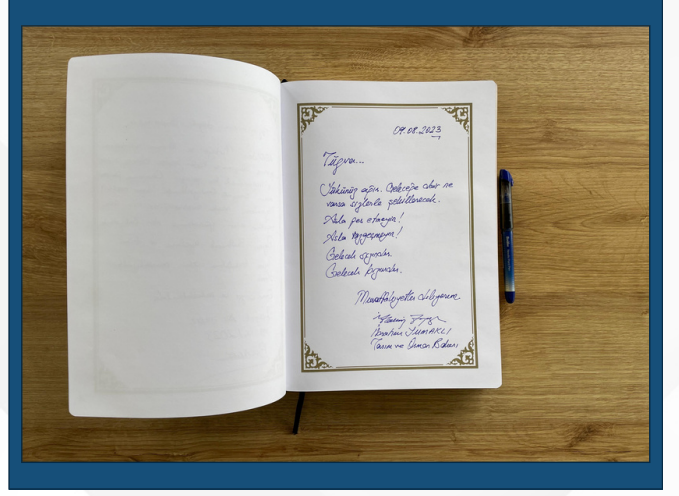 09.08.2023
Tügva...
Yükünüz ağır. Geleceğe dair ne
varsa sizlerle şekillenecek.
Asla pes etmeyin!
Asla vazgeçmeyin!
Gelecek sizinsin.
Gelecek bizimsin.
Muvaffakiyetler diliyorum.
İbrahim YUMAKLI
Tarım ve Orman Bakanı